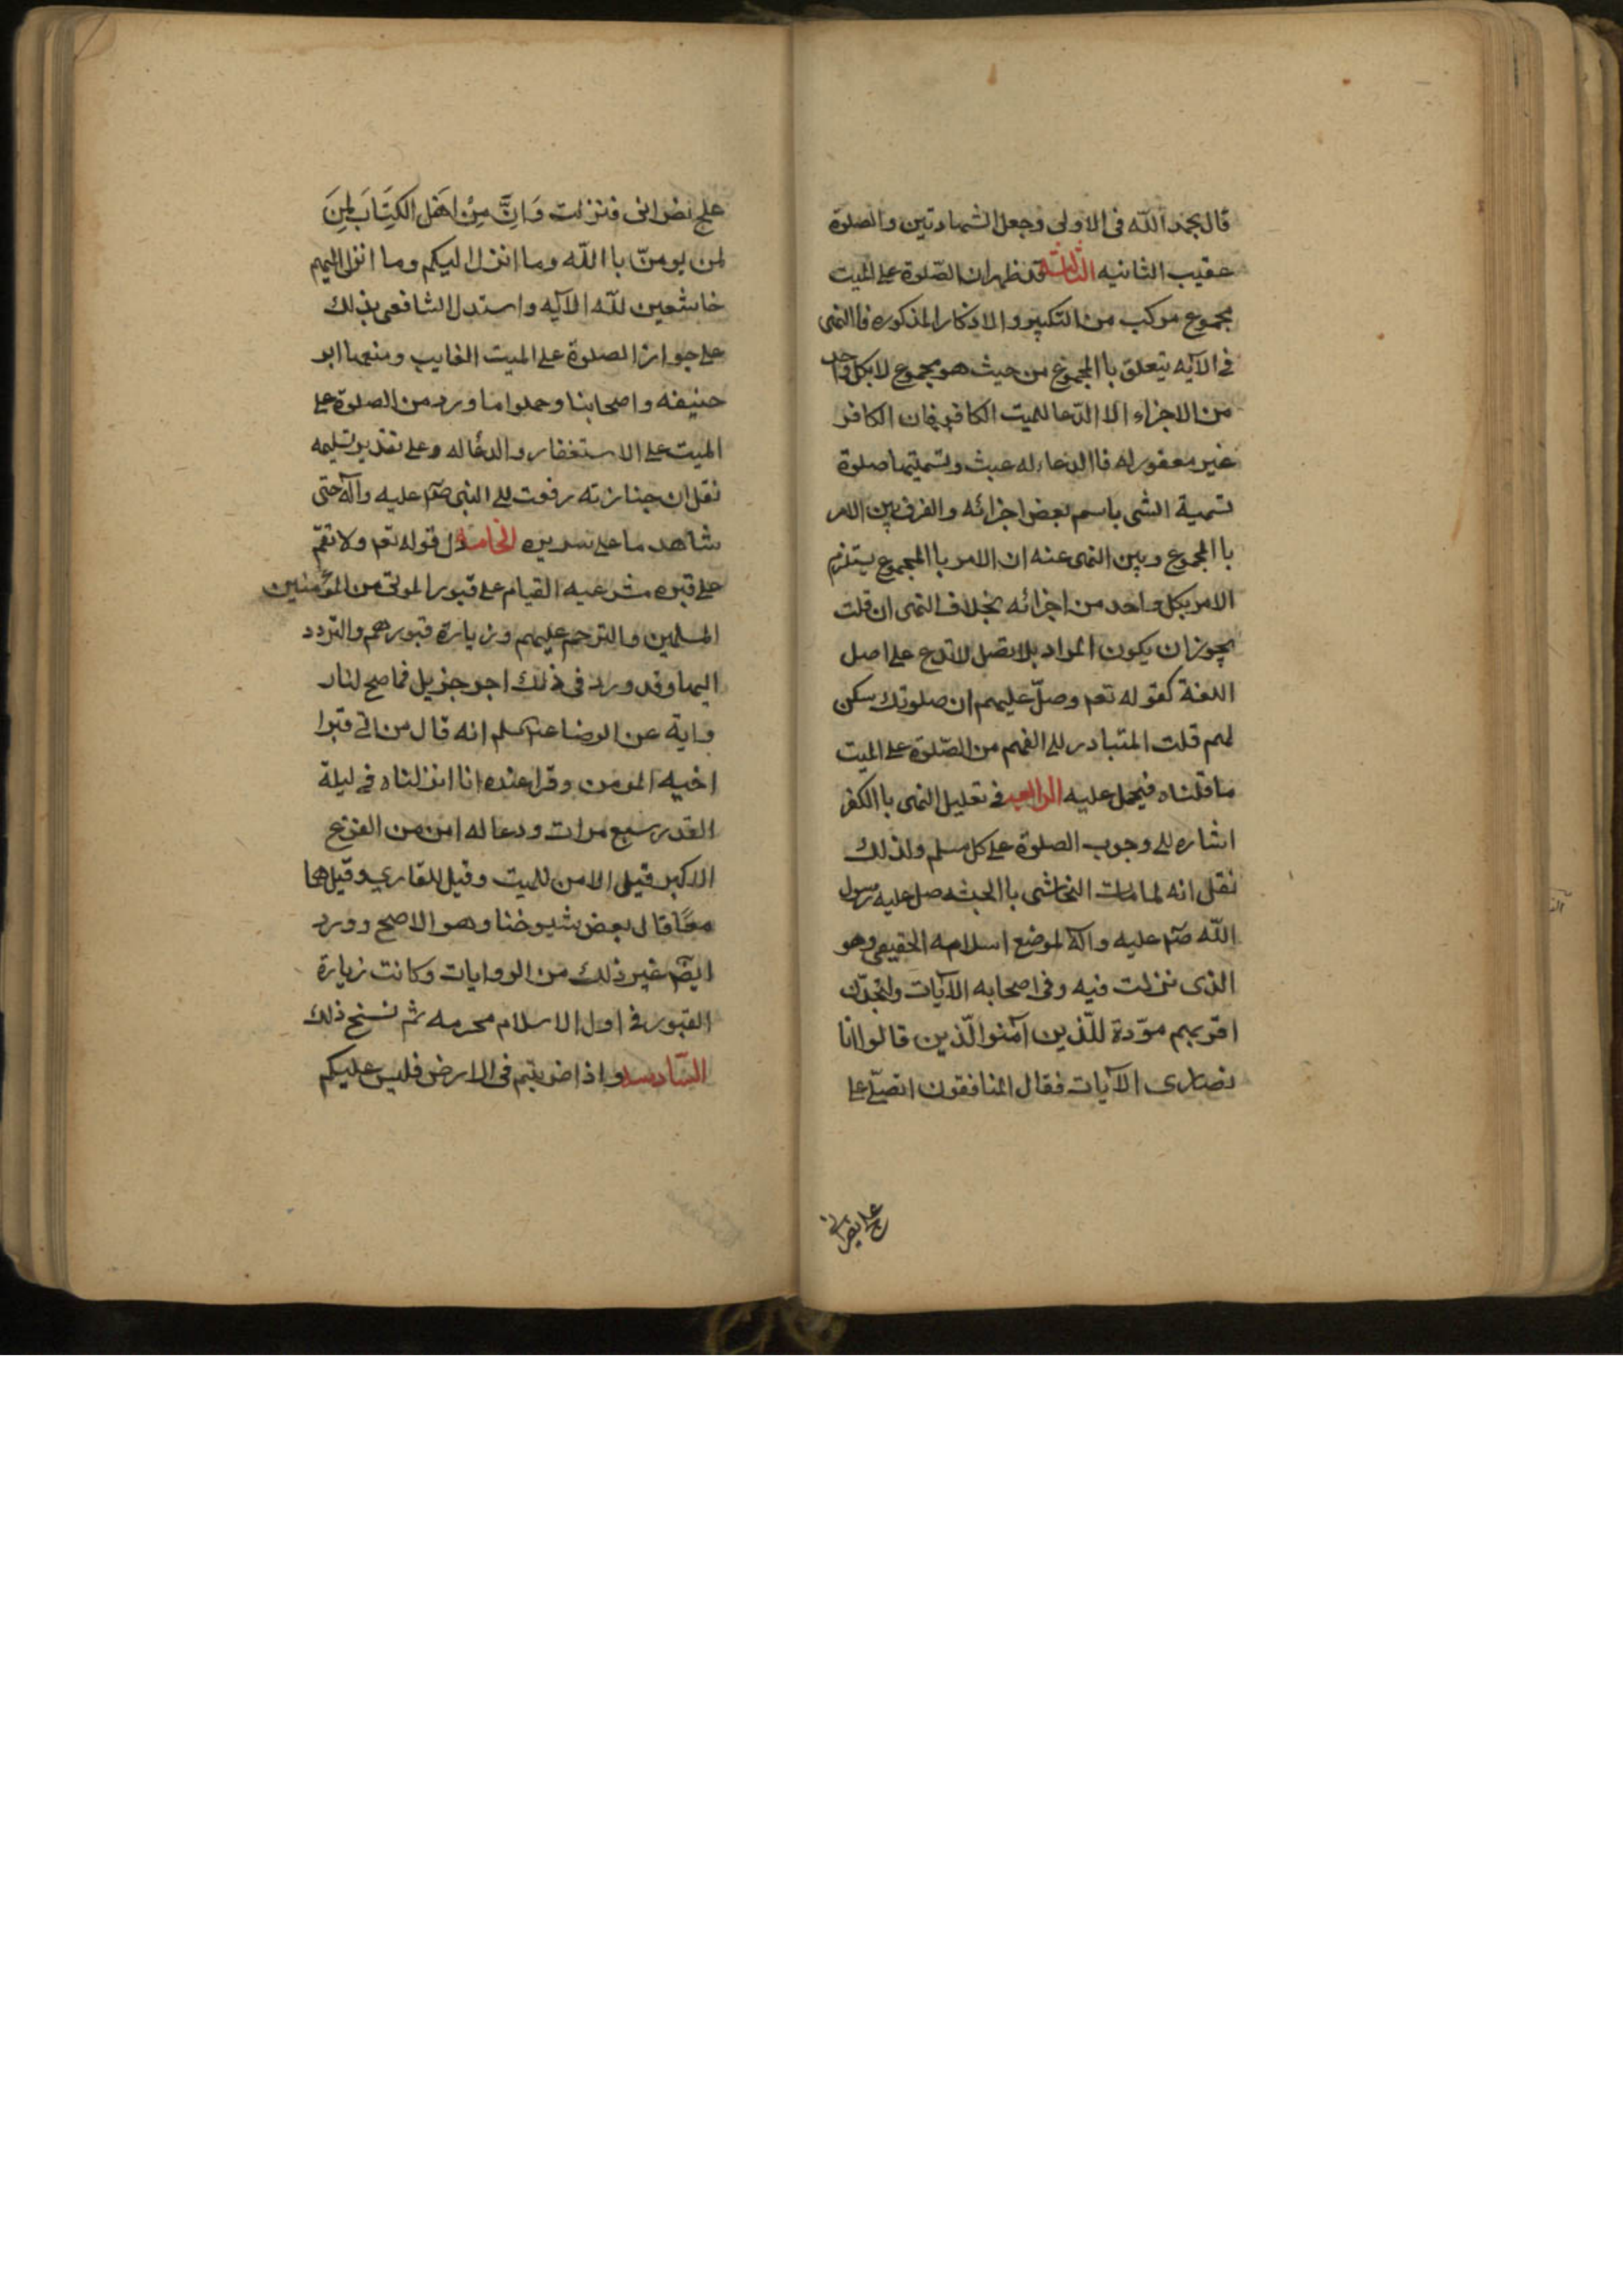 قال بحمد الله فى الاولى وجعل الشهادتين والصلوة
عقيب الثانيه الثالثة قد ظهران الصّلوة على الميت
مجموع مركب من التكبير والاذكار المذكوره فاالنهى
فى الآيه يتعلق باالمجموع من حيث هو مجموع لا بكل واحد
من الاجزاء الا الدّعا للميت الكافر فان الكافر
غير معفور له فاالدعاء له عبث وتسميتها صلوة
تسمية الشى باسم بعض اجزائه والفرق بين الامر
باالمجموع وبين النهى عنه ان الامر باالمجموع يستلزم
الامر بكل واحد من اجزائه بخلاف النهى ان قلت
يجوز ان يكون المراد بلا تصل لا تدع على اصل
اللغة كقوله تعم وصلّ عليهم ان صلوتك سكن
لهم قلت المتبادر الى الفهم من الصّلوة على الميت
ما قلناه فيحمل عليه الرابعه فى تعليل النهى باالكفر
اشاره الى وجوب الصلوة على كل مسلم ولذلك
نقل انه لما مات النخاشى باالحبشه صل عليه رسول
الله صلم عليه وآله لموضع اسلامه الحقيقى وهو
الذى نزلت فيه وفى اصحابه الآيات ولتجدّن
اقربهم مودّة للّذين آمنوا الّذين قالوا انا
نصارى الآيات فقال المنافقون انصلّى على
علج نصرانى
علج نصرانى فنزلت وَاِنَّ مِنْ اَهْل الكِتَابَ لمِنَ
لمن يومنّ باالله وما انزل اليكم وما انزل اليهم
خاشعين للّه الآيه واستدل الشافعى بذلك
على جواز الصلوة على الميت الغايب ومنعها ابو
حنيفه واصحابنا وحملوا ما ورد من الصلوة على
الميت على الاستغفار والدعا له وعلى تقدير تسليمه
نقل ان جنازته رفعت الى النبى صلم عليه وآله حتى
شاهدها على سريره الخامسة دل قوله تعم ولا تقم
على قبره مشرعيه القيام على قبور الموتى من المؤمنين
المسلمين والترحم عليهم وزيارة قبورهم والتردد
اليها وقد ورد فى ذلك اجر جزيل فما صح لنا ر
واية عن الرضا عليه السلم انه قال من اتى قبرا
اخيه المومن وقرا عنده انا انزلناه فى ليلة
القدر سبع مرات ودعا له امن من الفزع
الاكبر قيل الامن للميت وقيل للقاري وقيل هما
معًا قال بعض شيوخنا وهو الاصح وورد
ايضم غير ذلك من الروايات وكانت زيارة
القبور فى اول الاسلام محرمه ثم نسخ ذلك
السّادسه واذا ضربتم فى الارض فليس عليكم